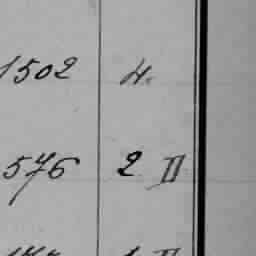 1502 4.
576 2 II